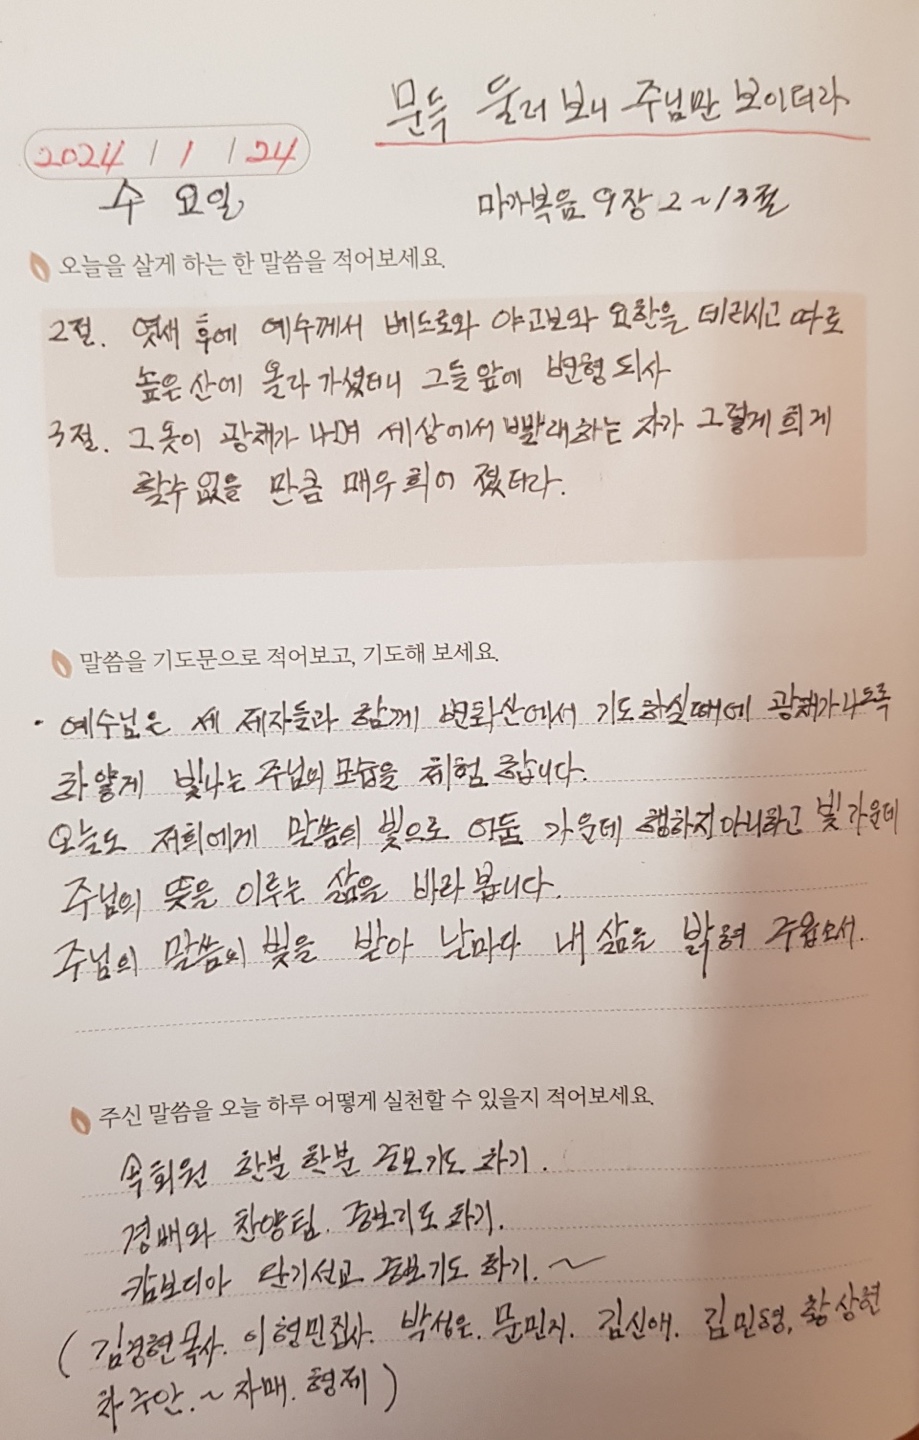 문득 둘러 보니 주님만 보이더라
2024 / 1 / 24
수 요일
마가복음 9장 2~13절
오늘을 살게 하는 한 말씀을 적어보세요.
2절. 엿새 후에 예수께서 베드로와 야고보와 요한을 데리시고 따로
높은 산에 올라 가셨더니 그들 앞에 변형 되사
3절. 그 옷이 광채가 나며 세상에서 빨래하는 자가 그렇게 희게
할수 없을 만큼 매우 희어 졌더라.
말씀을 기도문으로 적어보고, 기도해 보세요.
· 예수님은 세 제자들과 함께 변화산에서 기도하실때에 광채가나도록
하얗게 빛나는 주님의 모습을 체험 합니다.
오늘도 저희에게 말씀의 빛으로 어둠 가운데 행하지 아니하고 빛 가운데
주님의 뜻을 이루는 삶을 바라 봅니다.
주님의 말씀의 빛을 받아 날마다 내 삶을 밝혀 주옵소서.
주신 말씀을 오늘 하루 어떻게 실천할 수 있을지 적어보세요.
속회원 한분 한분 중보기도 하기.
경배와 찬양팀. 중보기도 하기.
캄보디아 단기선교 중보기도 하기. ~
(김경현목사. 이형민집사. 박성은. 문민지. 김신애. 김민영, 황상현
차주안.~ 자매. 형제)